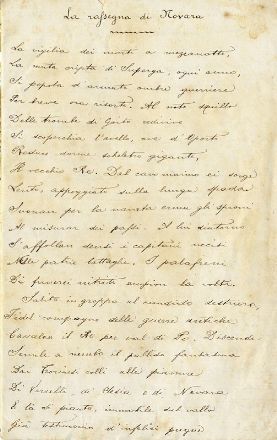 La rassegna di Novara
La vigilia dei morti a mezzanotte,
La muta cripta di Superga, ogni anno,
Si popola d'armate ombre guerriere
Per breve ora risorte. Al noto squillo
Delle trombe di Goito
Si scoperchia l'avello, ove d'Oporto
Reduce dorme scheletro gigante,
Il vecchio Re. Dal cav marmo ei sorge
Lento, appoggiato sulla lunga spada
Suonan per la cripta gli sproni
Al misurar dei passi. A lui d'intorno
S'affollan densi i capitani uccisi
Nelle patrie battaglie. I palafreni
Di nitriti empion la volta.
Salito in groppa al candido destriero,
Fedel compagno delle guerre antiche
Cavalca il Re per val di Po. Discende
Simile a nembo il pallido fantasma
Dai Torinesi colli alle pianure
Di Vercelli, di Sesia, e di Novara
E là si pianta, immobile sul vallo
Già testimonio d'infelici pugne